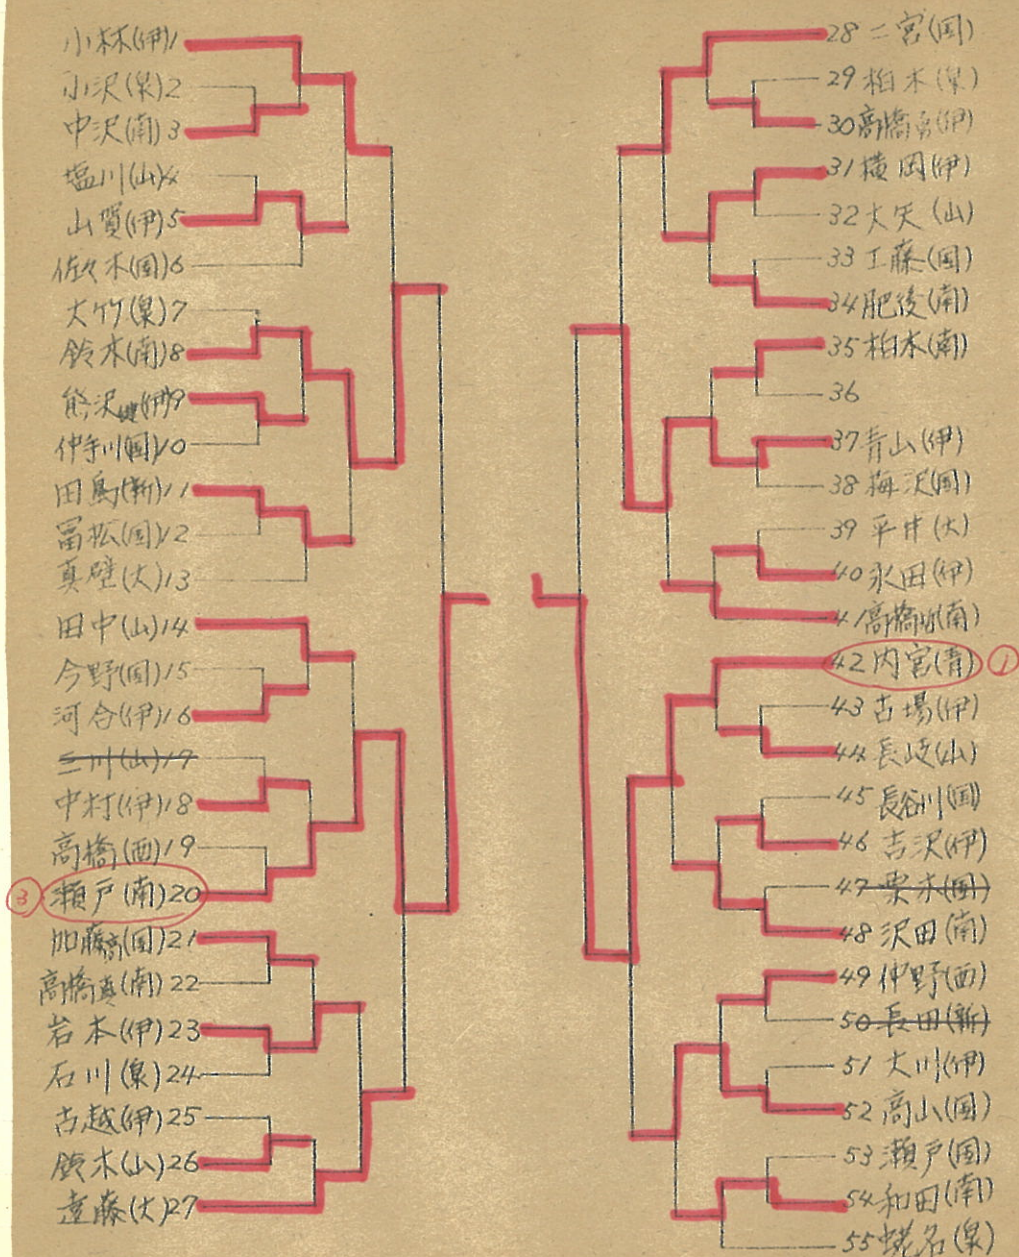 小林(伊)1
小沢(泉)2
中沢(南)3
塩川(山)4
山賀(伊)5
佐々木(国)6
大竹(泉)7
鈴木(南)8
熊沢健(伊)9
仲手川(国)10
田島(新)11
冨松(国)12
真壁(大)13
田中(山)14
今野(国)15
河合(伊)16
三川(山)17
中村(伊)18
高橋(西)19
③ 瀬戸(南)20
加藤高(国)21
高橋真(南)22
岩本(伊)23
石川(泉)24
古越(伊)25
鈴木(山)26
遠藤(大)27
28 二宮(国)
29 柏木(泉)
30 高橋(伊)
31 横岡(伊)
32 大矢(山)
33 工藤(国)
34 肥後(南)
35 柏木(南)
36
37 青山(伊)
38 梅沢(国)
39 平井(大)
40 永田(伊)
41 高橋(南)
42 内宮(青) ①
43 古場(伊)
44 長岐(山)
45 長谷川(国)
46 吉沢(伊)
47 栗木(国)
48 沢田(南)
49 仲野(西)
50 長田(新)
51 大川(伊)
52 高山(国)
53 瀬戸(国)
54 和田(南)
55 蛯名(泉)